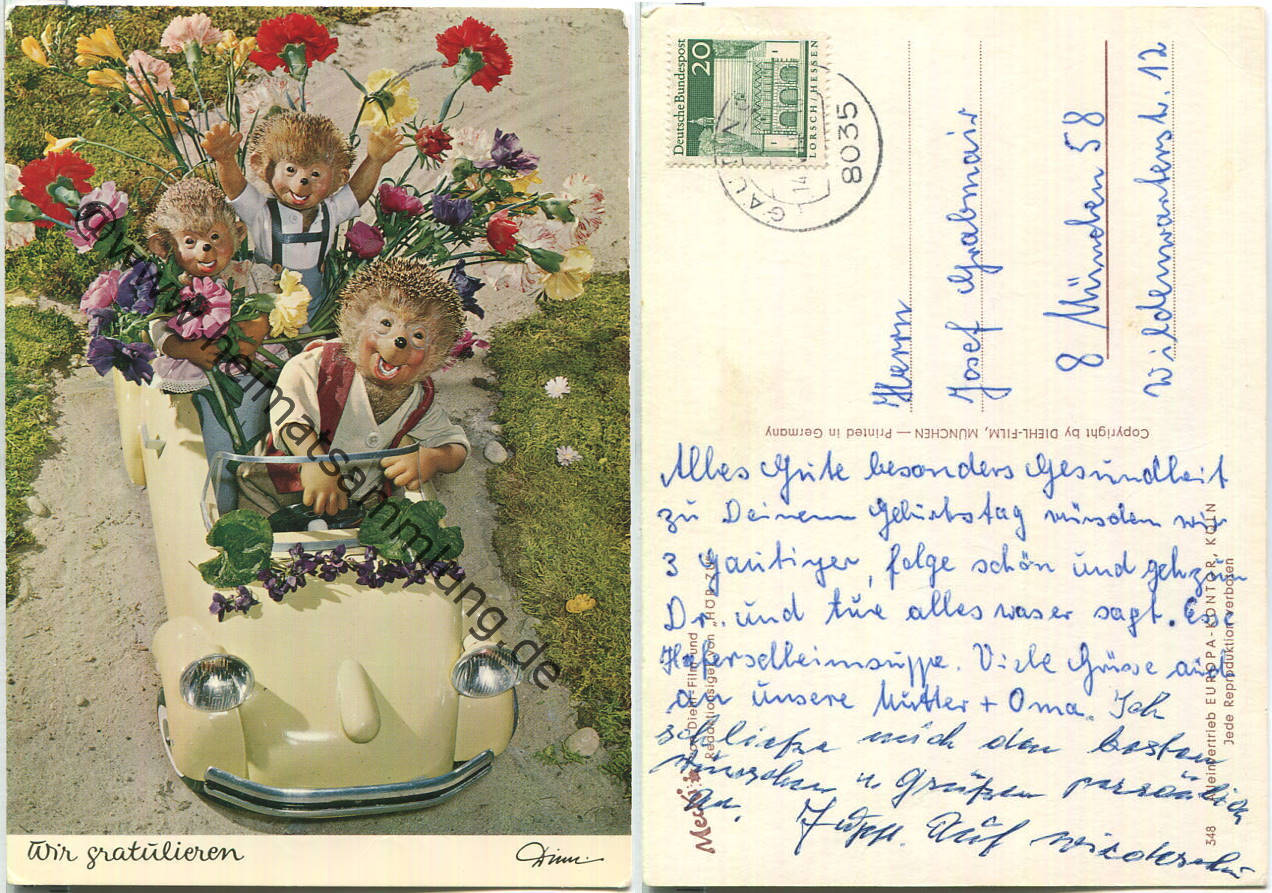 Wir gratulieren
Diehl
@www.heimatsammlung.de
Deutsche Bundespost
20
LORSCH/HESSEN
8035
Herrn
Josef Grabmair
8 München 58
Wildenwarterstr. 12
Copyright by DIEHL-FILM, MÜNCHEN — Printed in Germany
Alles Gute besonders Gesundheit
zu Deinem Geburtstag wünschen wir
3 Gautinger, folge schön und geh zum
Dr. und tue alles waser sagt. Esse
Haferschleimsuppe. Viele Grüsse auch
an unsere Mutter + Oma. Ich
schließe mich den besten
wünschen u. Grüßen persönlich
an. Auf wiedersehn
Mecki
von Diehl-Film und
Redaktionsigel von „HÖR ZU“
348 Alleinvertrieb EUROPA-KONTOR, KÖLN
Jede Reproduktion verboten